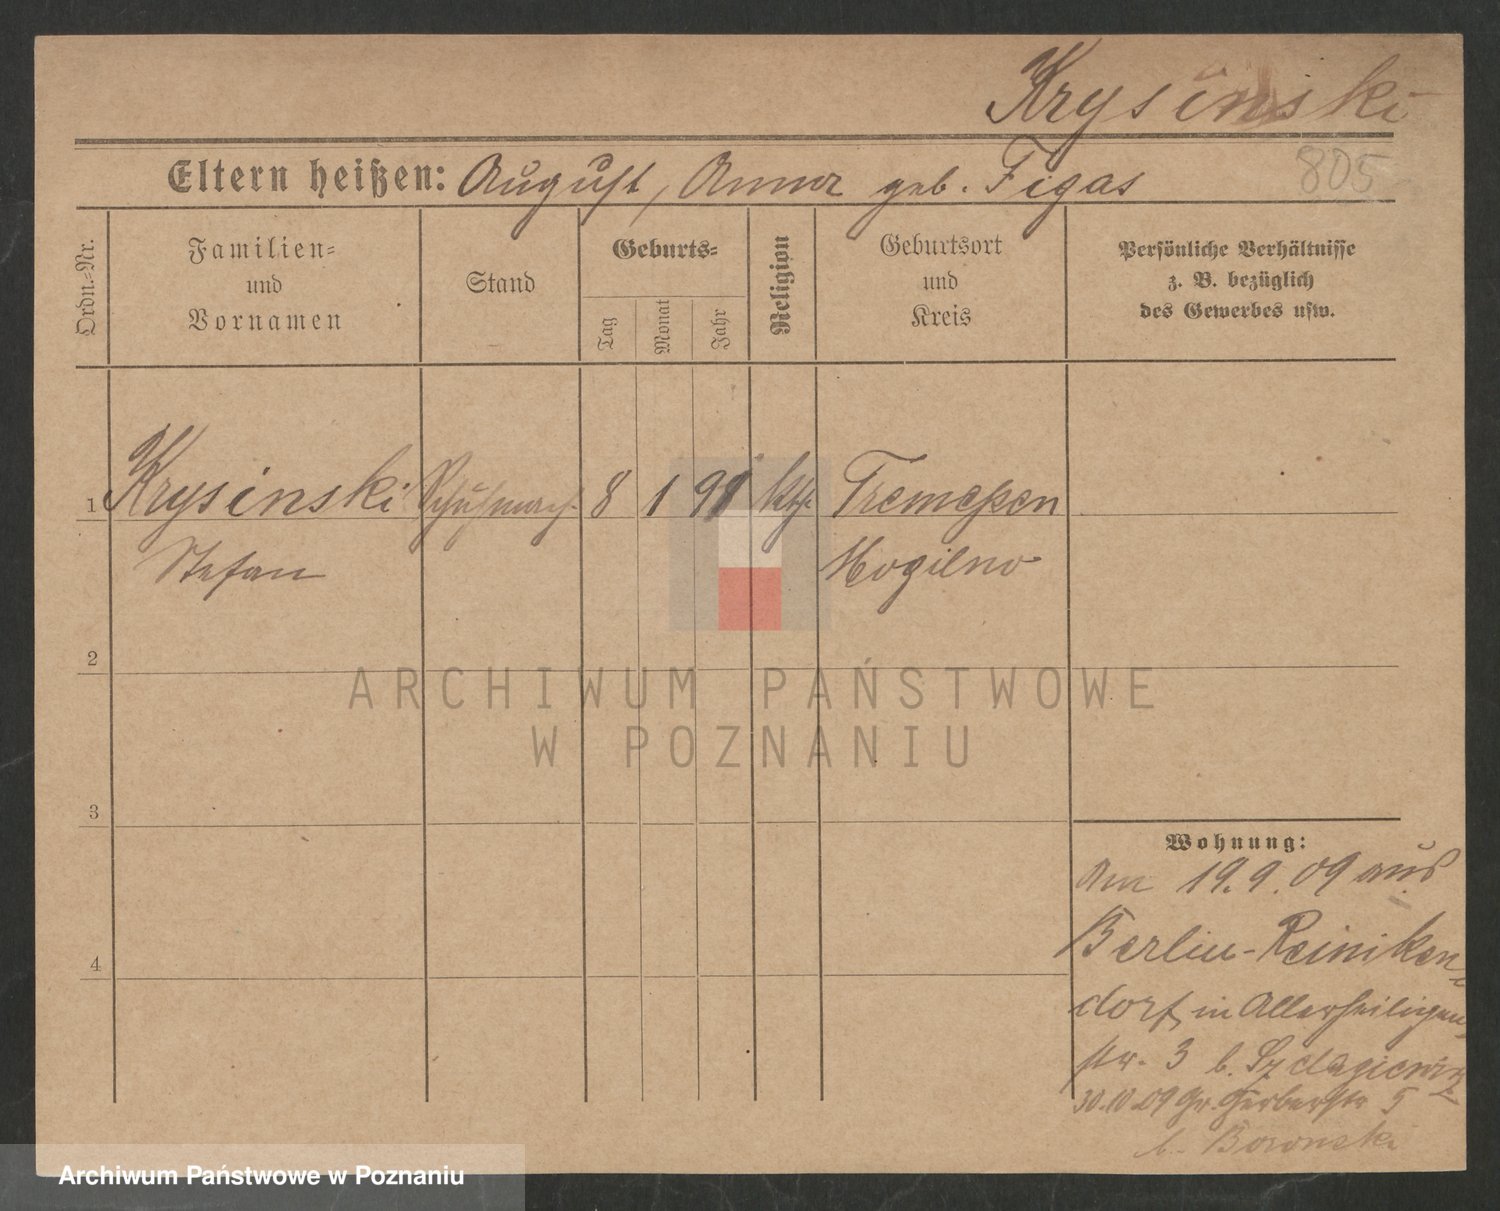 Krysinski
805
Eltern heißen: August, Anna geb. Figas
Ordn.-Nr.
Familien-
und
Vornamen
Stand
Geburts-
Tag
Monat
Jahr
Religion
Geburtsort
und
Kreis
Persönliche Verhältnisse
z. B. bezüglich
des Gewerbes usw.
1 Krysinski Schuhmach. 8 1 91 kth. Tremeßen
Stefan Mogilno
2
ARCHIWUM PAŃSTWOWE
W POZNANIU
3
Wohnung:
Am 19.9.09 aus
Berlin-Reiniken-
4
dorf, in Allerheiligen
str. 3 b.
30.10.09 Gr. Gerberstr 5
b. Boronski
Archiwum Państwowe w Poznaniu